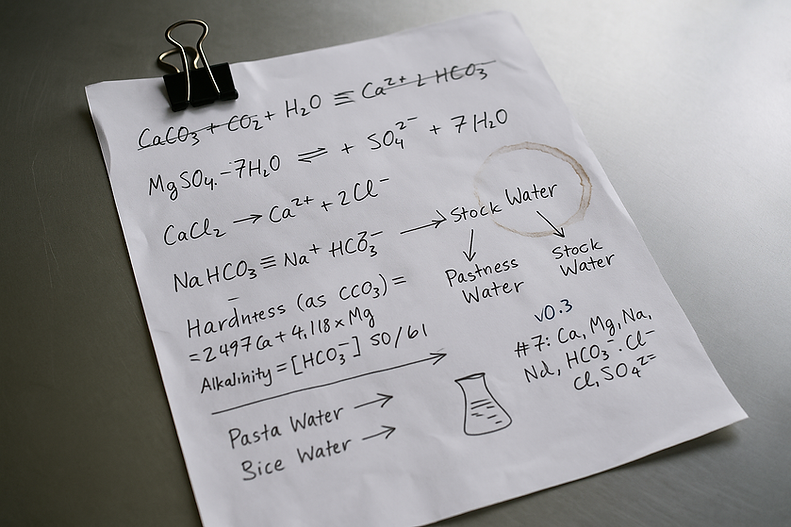 CaCO₃ + CO₂ + H₂O ≡ Ca²⁺ 2 HCO₃⁻
MgSO₄.-7H₂O ⇌ + SO₄²⁻ + 7H₂O
CaCl₂ → Ca²⁺ + 2Cl⁻
NaHCO₃ ≡ Na⁺ HCO₃⁻ → Stock Water
Pastness Water
Stock Water
Hardntess (as CCO₃) =
= 2497Ca + 4,118 × Mg
Alkalinity = [HCO₃⁻] 50/61
v0.3
#7: Ca, Mg, Na,
Nd, HCO₃⁻. Cl⁻
Cl, SO₄²⁻
Pasta Water →
Bice Water →